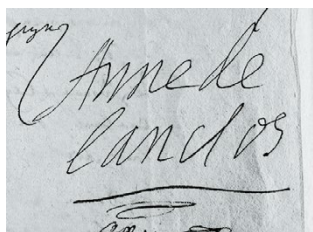 Anne de
lanclos